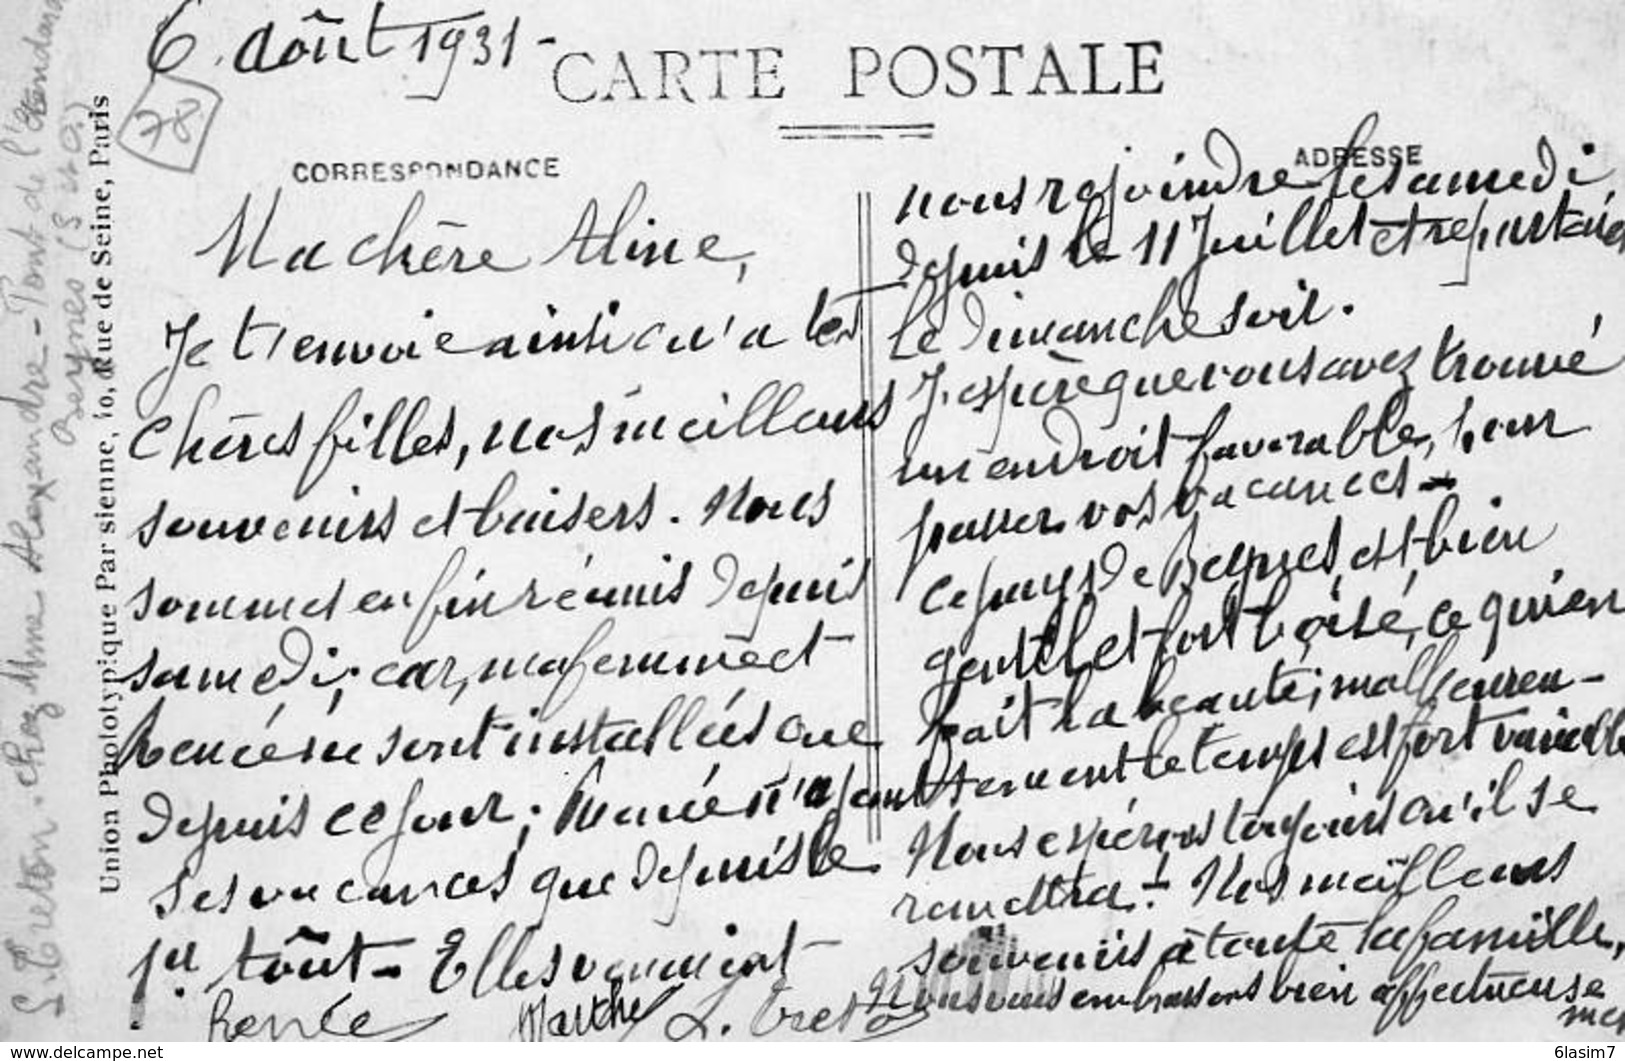 6. Août 1931 -
CARTE POSTALE
78
CORRESPONDANCE
Ma chère Aline,
Je t'envoie ainsi qu'a tes
chères filles, nos meilleurs
souvenirs et baisers. Nous
sommes enfin réunis depuis
samedi; car, ma femme et
Renée ne sont installées que
depuis ce jour; Renée n'ayant
ses vacances que depuis le
1er Août - Elles venaient
ADRESSE
nous rejoindre le samedi,
depuis le 11 Juillet et repartaient
le Dimanche soir.
J'espère que vous avez trouvé
un endroit favorable, pour
passer vos vacances -
Ce pays de Beynes, est bien
gentil et fort boisé, ce qui en
fait la beauté; malheureu-
sement le temps est fort variable
Nous espérons toujours qu'il se
remettra! Nos meilleurs
souvenirs à toute la famille,
Nous vous embrassons bien affectueuse
ment
Renée Marthe L. Treton
L. Treton. chez Mme Alexandre - Pont de l'Etendard
Beynes (S et O)
Union Phototypique Parisienne, 10, Rue de Seine, Paris
www.delcampe.net
6lasim7